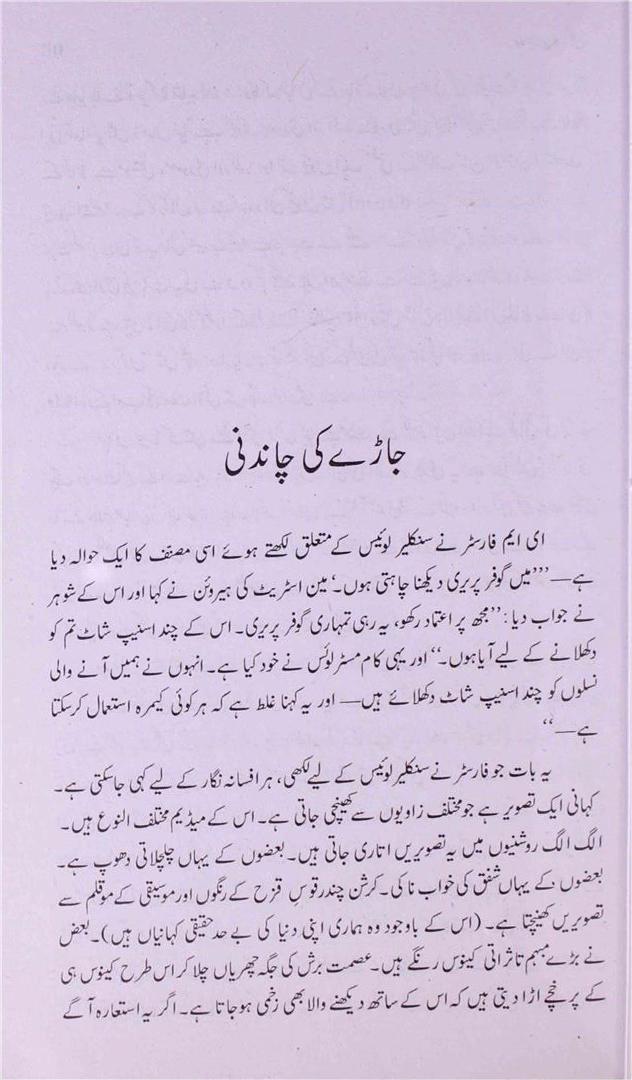 جاڑے کی چاندنی
ای ایم فارسٹر نے سنکلیر لوئیس کے متعلق لکھتے ہوئے اسی مصنف کا ایک حوالہ دیا
ہے—’’’میں گوفر پریری دیکھنا چاہتی ہوں۔‘ مین اسٹریٹ کی ہیروئن نے کہا اور اس کے شوہر
نے جواب دیا: ’’مجھ پر اعتماد رکھو، یہ رہی تمہاری گوفر پریری۔ اس کے چند اسنیپ شاٹ تم کو
دکھلانے کے لیے آیا ہوں۔‘‘ اور یہی کام مسٹر لوئس نے خود کیا ہے۔ انہوں نے ہمیں آنے والی
نسلوں کو چند اسنیپ شاٹ دکھلائے ہیں— اور یہ کہنا غلط ہے کہ ہر کوئی کیمرہ استعمال کرسکتا
ہے—‘‘
یہ بات جو فارسٹر نے سنکلیر لوئیس کے لیے لکھی، ہر افسانہ نگار کے لیے کہی جاسکتی ہے۔
کہانی ایک تصویر ہے جو مختلف زاویوں سے کھینچی جاتی ہے۔ اس کے میڈیم مختلف النوع ہیں۔
الگ الگ روشنیوں میں یہ تصویریں اتاری جاتی ہیں۔ بعضوں کے یہاں چلچلاتی دھوپ ہے۔
بعضوں کے یہاں شفق کی خواب ناکی۔ کرشن چندر قوسِ قزح کے رنگوں اور موسیقی کے موقلم سے
تصویریں کھینچتا ہے۔ (اس کے باوجود وہ ہماری اپنی دنیا کی بے حد حقیقی کہانیاں ہیں)۔ بعض
نے بڑے مبہم تاثراتی کینوس رنگے ہیں۔ عصمت برش کی جگہ چھریاں چلا کر اس طرح کینوس ہی
کے پرخچے اڑا دیتی ہیں کہ اس کے ساتھ دیکھنے والا بھی زخمی ہوجاتا ہے۔ اگر یہ استعارہ آگے